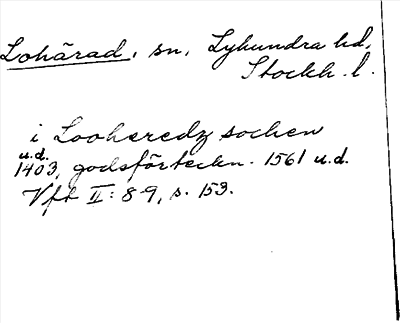 Lohärad, sn, Lyhundra hd,
Stockh. l.
i Looheredz sochen
u.d.
1403, godsförteckn. 1561 u.d.
Vft II: 8-9, s. 153.